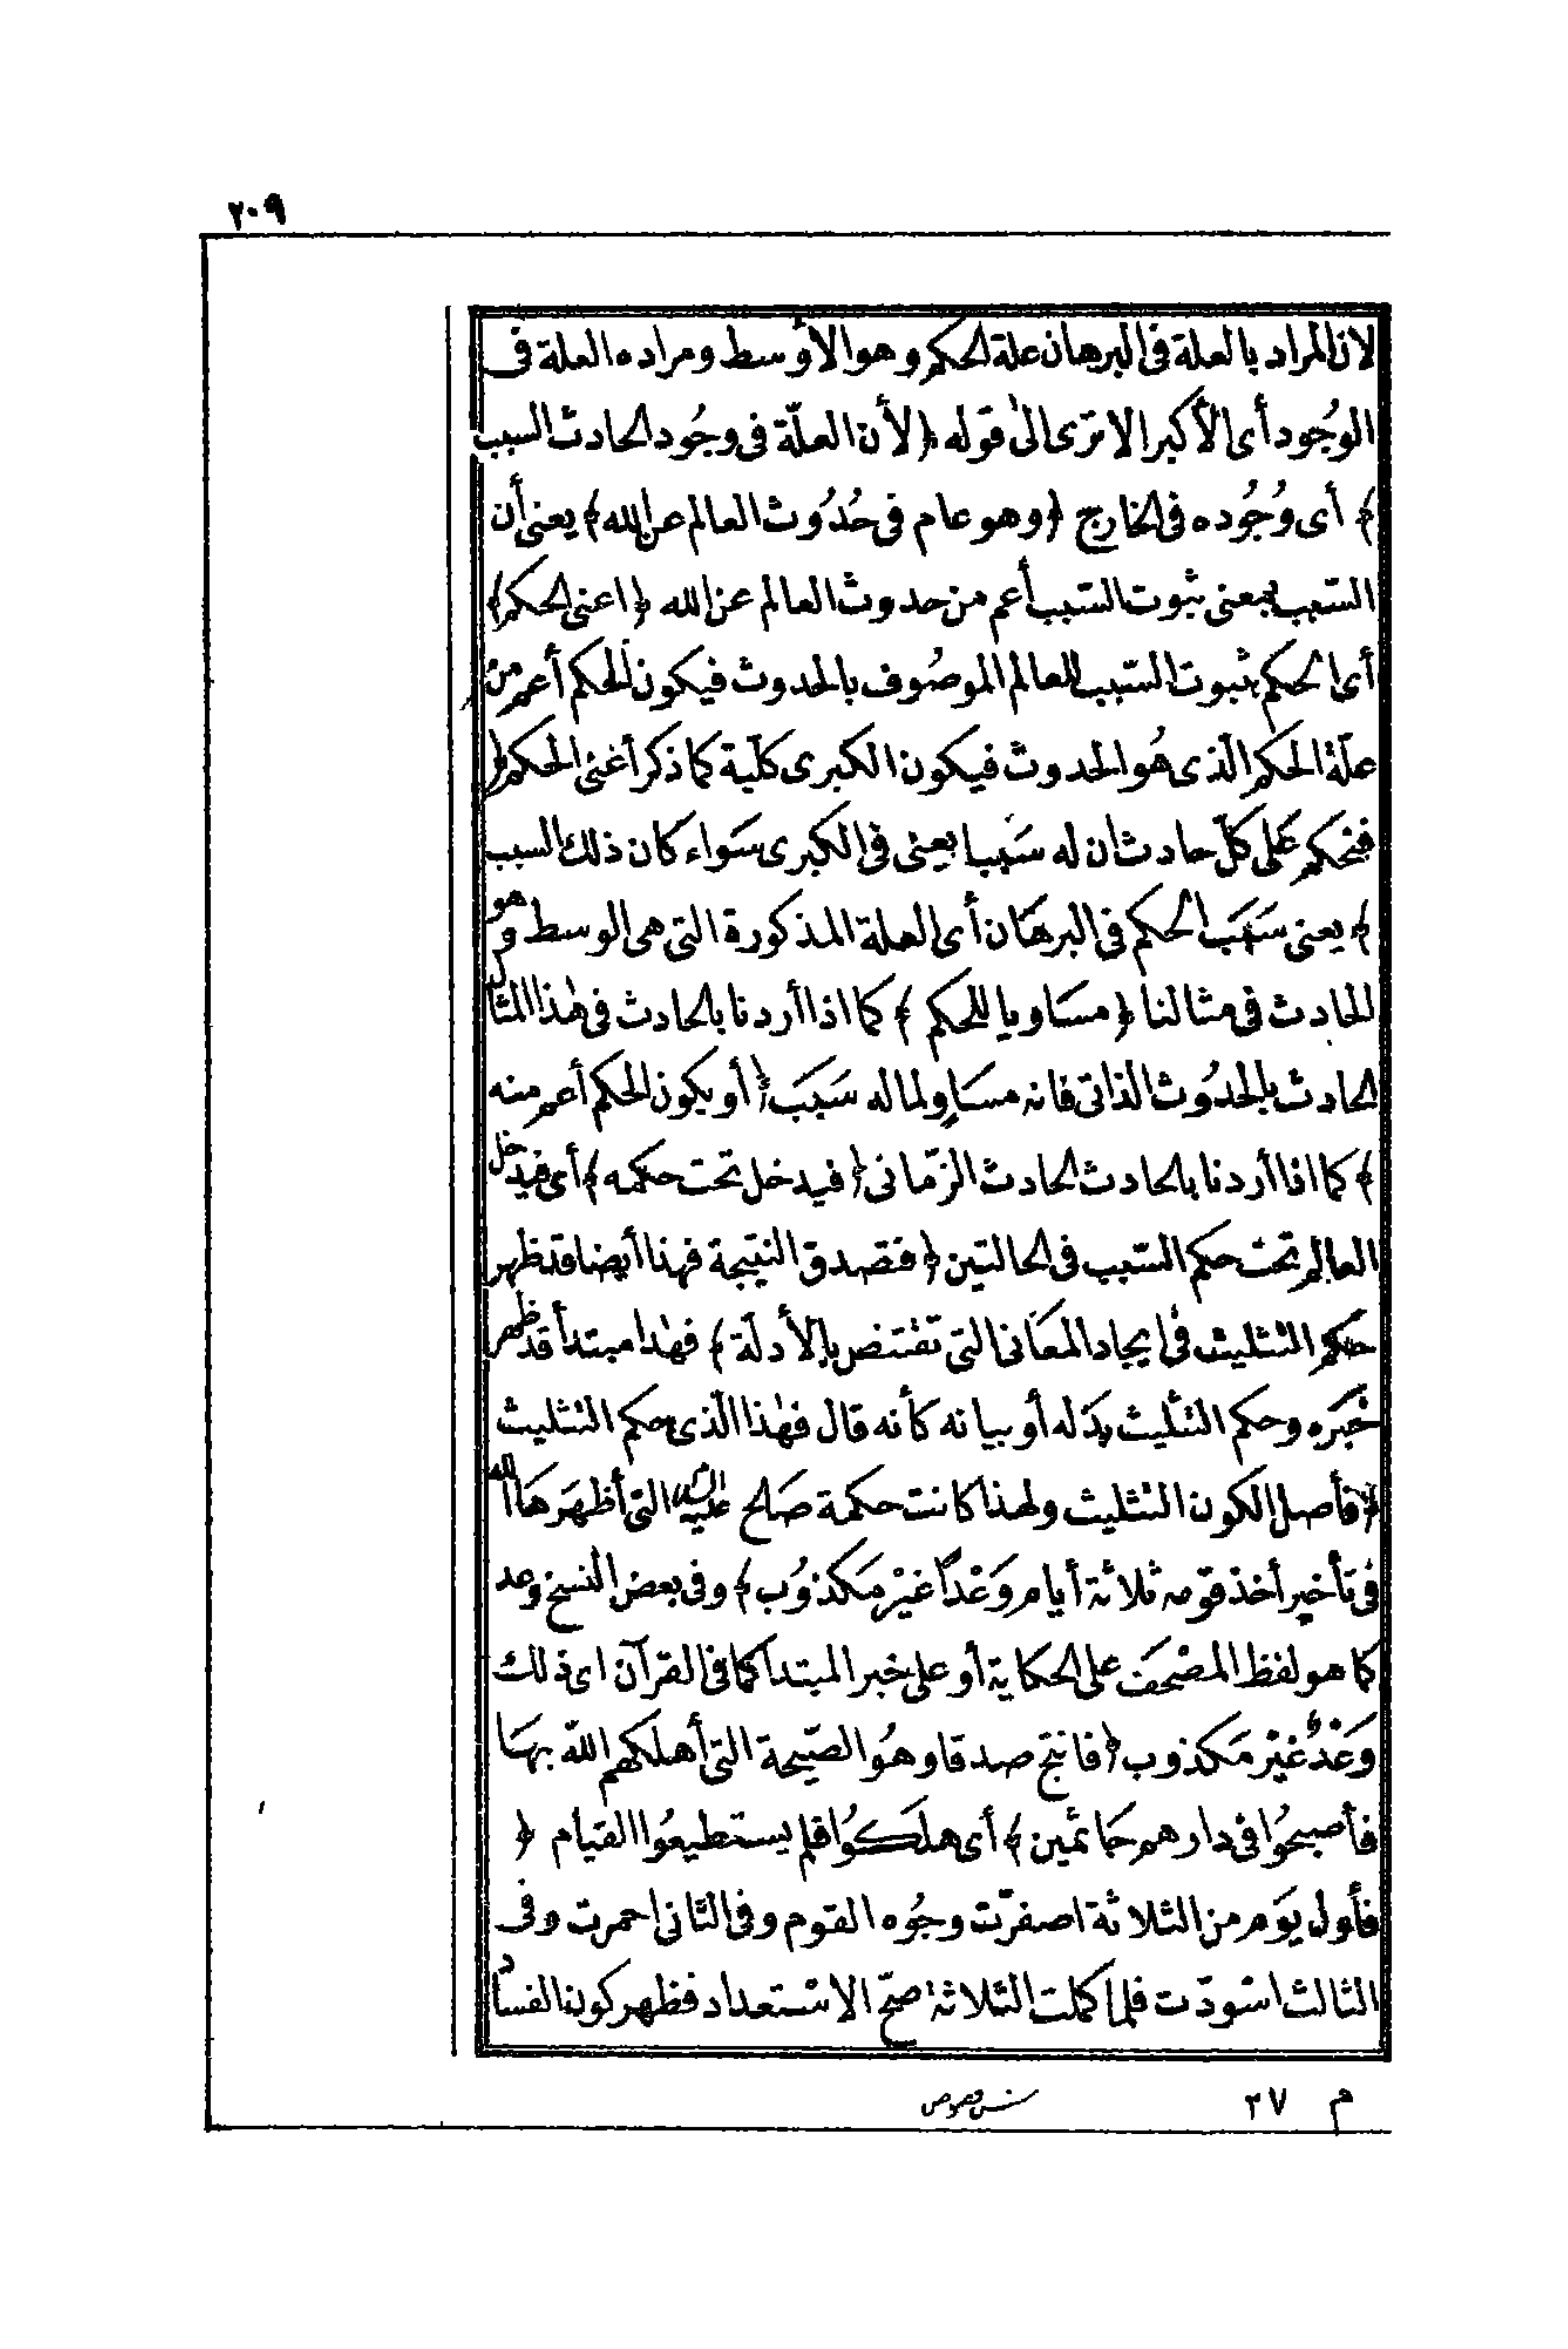 ٢٠٩
لان المراد بالعلة فى البرهان علة الحكم وهو الأوسط ومراده العلة فى
الوجُود أى الأكبر الا ترى الىٰ قوله ﴿ لأن العلّة فى وجُود الحادث السبب
﴾ أى وُجُوده فى الخارج ﴿ وهو عام فى حُدُوث العالم عن الله ﴾ يعنى أن
السّبب بمعنى ثبوت السّبب أعم من حدوث العالم عن الله ﴿ اعنى الحكم ﴾
أى الحكم بثبوت السّبب للعالم الموصُوف بالحدوث فيكون الحكم أعم من
علّة الحكم الّذى هُو الحدوث فيكون الكبرى كلّية كما ذكر أعنى الحكم ﴿
فنحكم عَلى كلّ حادث ان له سَببا يعنى فى الكبرى سَواء كان ذلك السبب
﴾ يعنى سَبَب الحكم فى البرهَان أى العلة المذكورة التى هى الوسط وهو
الحادث فى مثالنا ﴿ مسَاويا للحكم ﴾ كما اذا أردنا بالحادث فى هٰذا المثال
الحادث بالحدُوث الذاتى فانه مسَاوٍ لما له سَبَب ﴿ أو يكون الحكم أعم منه
﴾ كما اذا أردنا بالحادث الحادث الزّمانى ﴿ فيدخل تحت حكمه ﴾ أى فيدخل
العالم تحت حكم السّبب فى الحالتين ﴿ فتصدق النتيجة فهذا أيضا قد ظهر
حكم التثليث فى ايجاد المعَانى التى تقتنص بالأدلّة ﴾ فهٰذا مبتدأ قد ظهر
خبَره وحكم التثليث بدَله أو بيانه كأنه قال فهٰذا الّذى حكم التثليث
﴿ فأصل الكون التثليث ولهذا كانت حكمة صَالح عليه السلام التى أظهَرهَا الله
فى تأخير أخذ قومه ثلاثة أيام وَعْداً غيْر مَكذوُب ﴾ وفى بعض النسخ وعد
كما هو لفظ المصْحَف على الحكاية أو على خبر المبتدأ كما فى القرآن اى ذلك
وَعْدٌ غيْر مَكذوب ﴿ فانتج صدقا وهُو الصّيحة التى أهلكهم اللّه بهَا
فأصبحوُا فى دارهم جَاثمين ﴾ أى هلَكوُا فلم يستطيعُوا القيام ﴿
فأول يَوم من الثلاثة اصفرّت وجُوه القوم وفى الثانى احمرت وفى
الثالث اسْودّت فلما كملت الثلاثة صحّ الاسْتعداد فظهر كون الفساد
م ٢٧ شرح فصوص